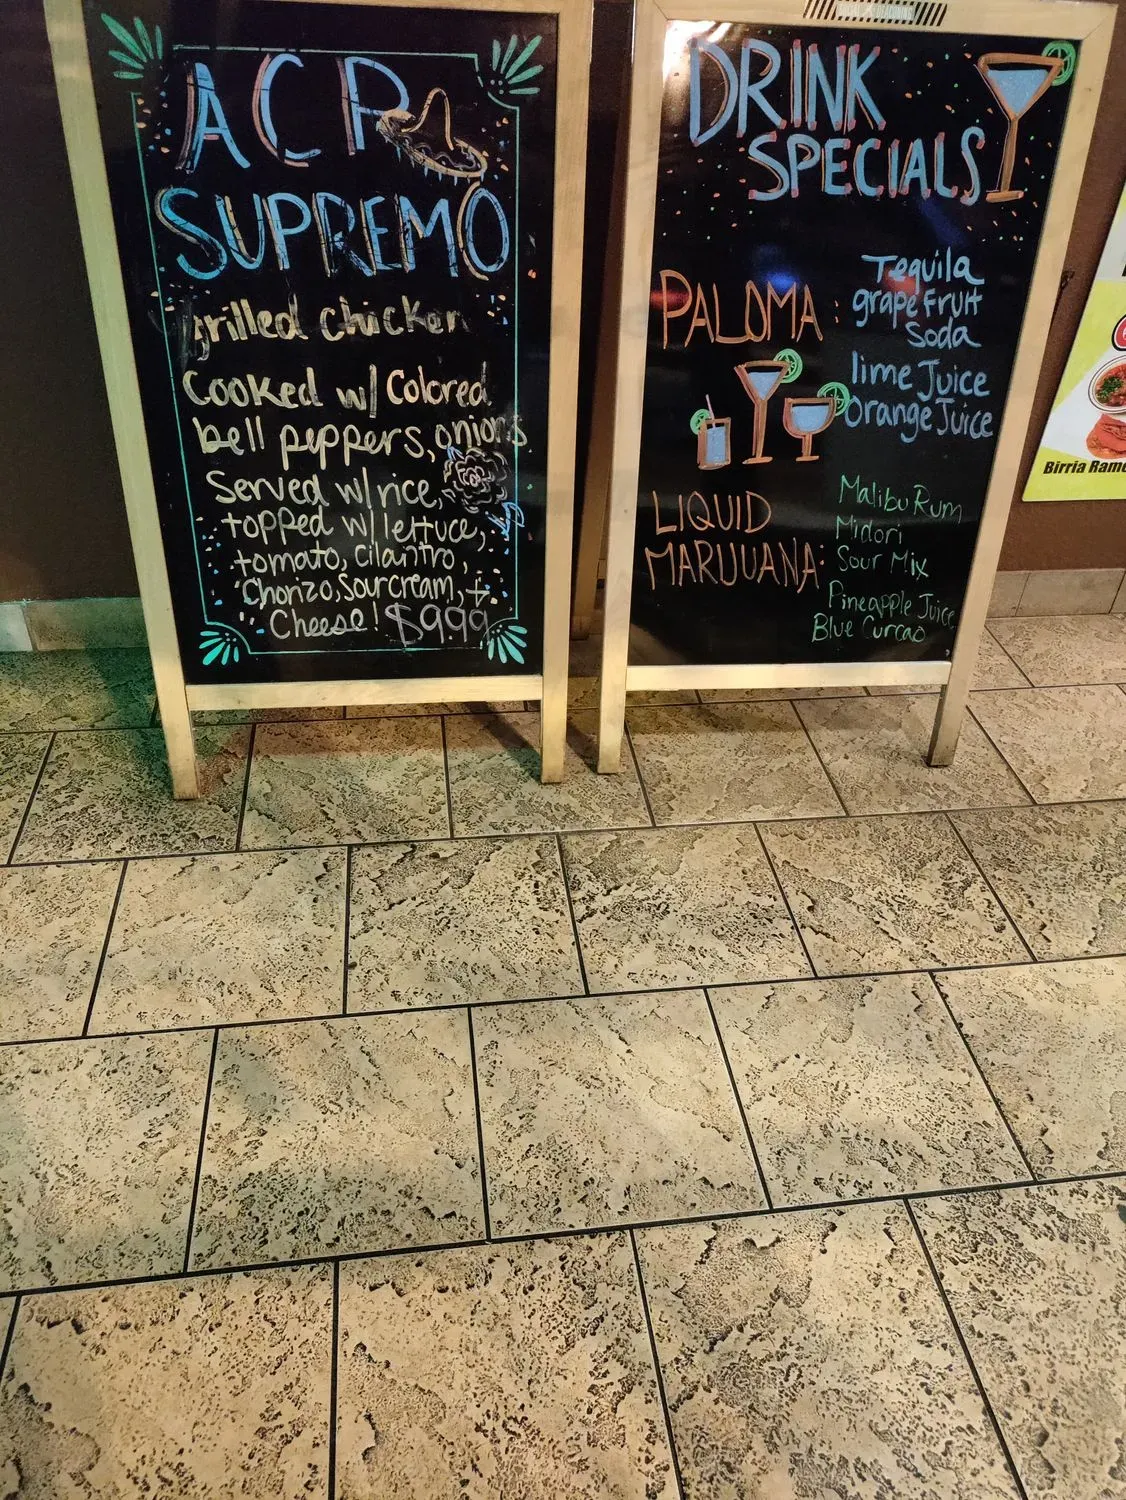 ACP
SUPREMO
grilled chicken
Cooked w/ Colored
bell peppers, onions
Served w/ rice,
topped w/ lettuce,
tomato, cilantro,
Chorizo, sour cream, +
Cheese! $9.99
DRINK
SPECIALS
PALOMA:
Tequila
grapefruit
Soda
lime Juice
Orange Juice
LIQUID
MARIJUANA:
Malibu Rum
Midori
Sour Mix
Pineapple Juice
Blue Curcao
Birria Rame